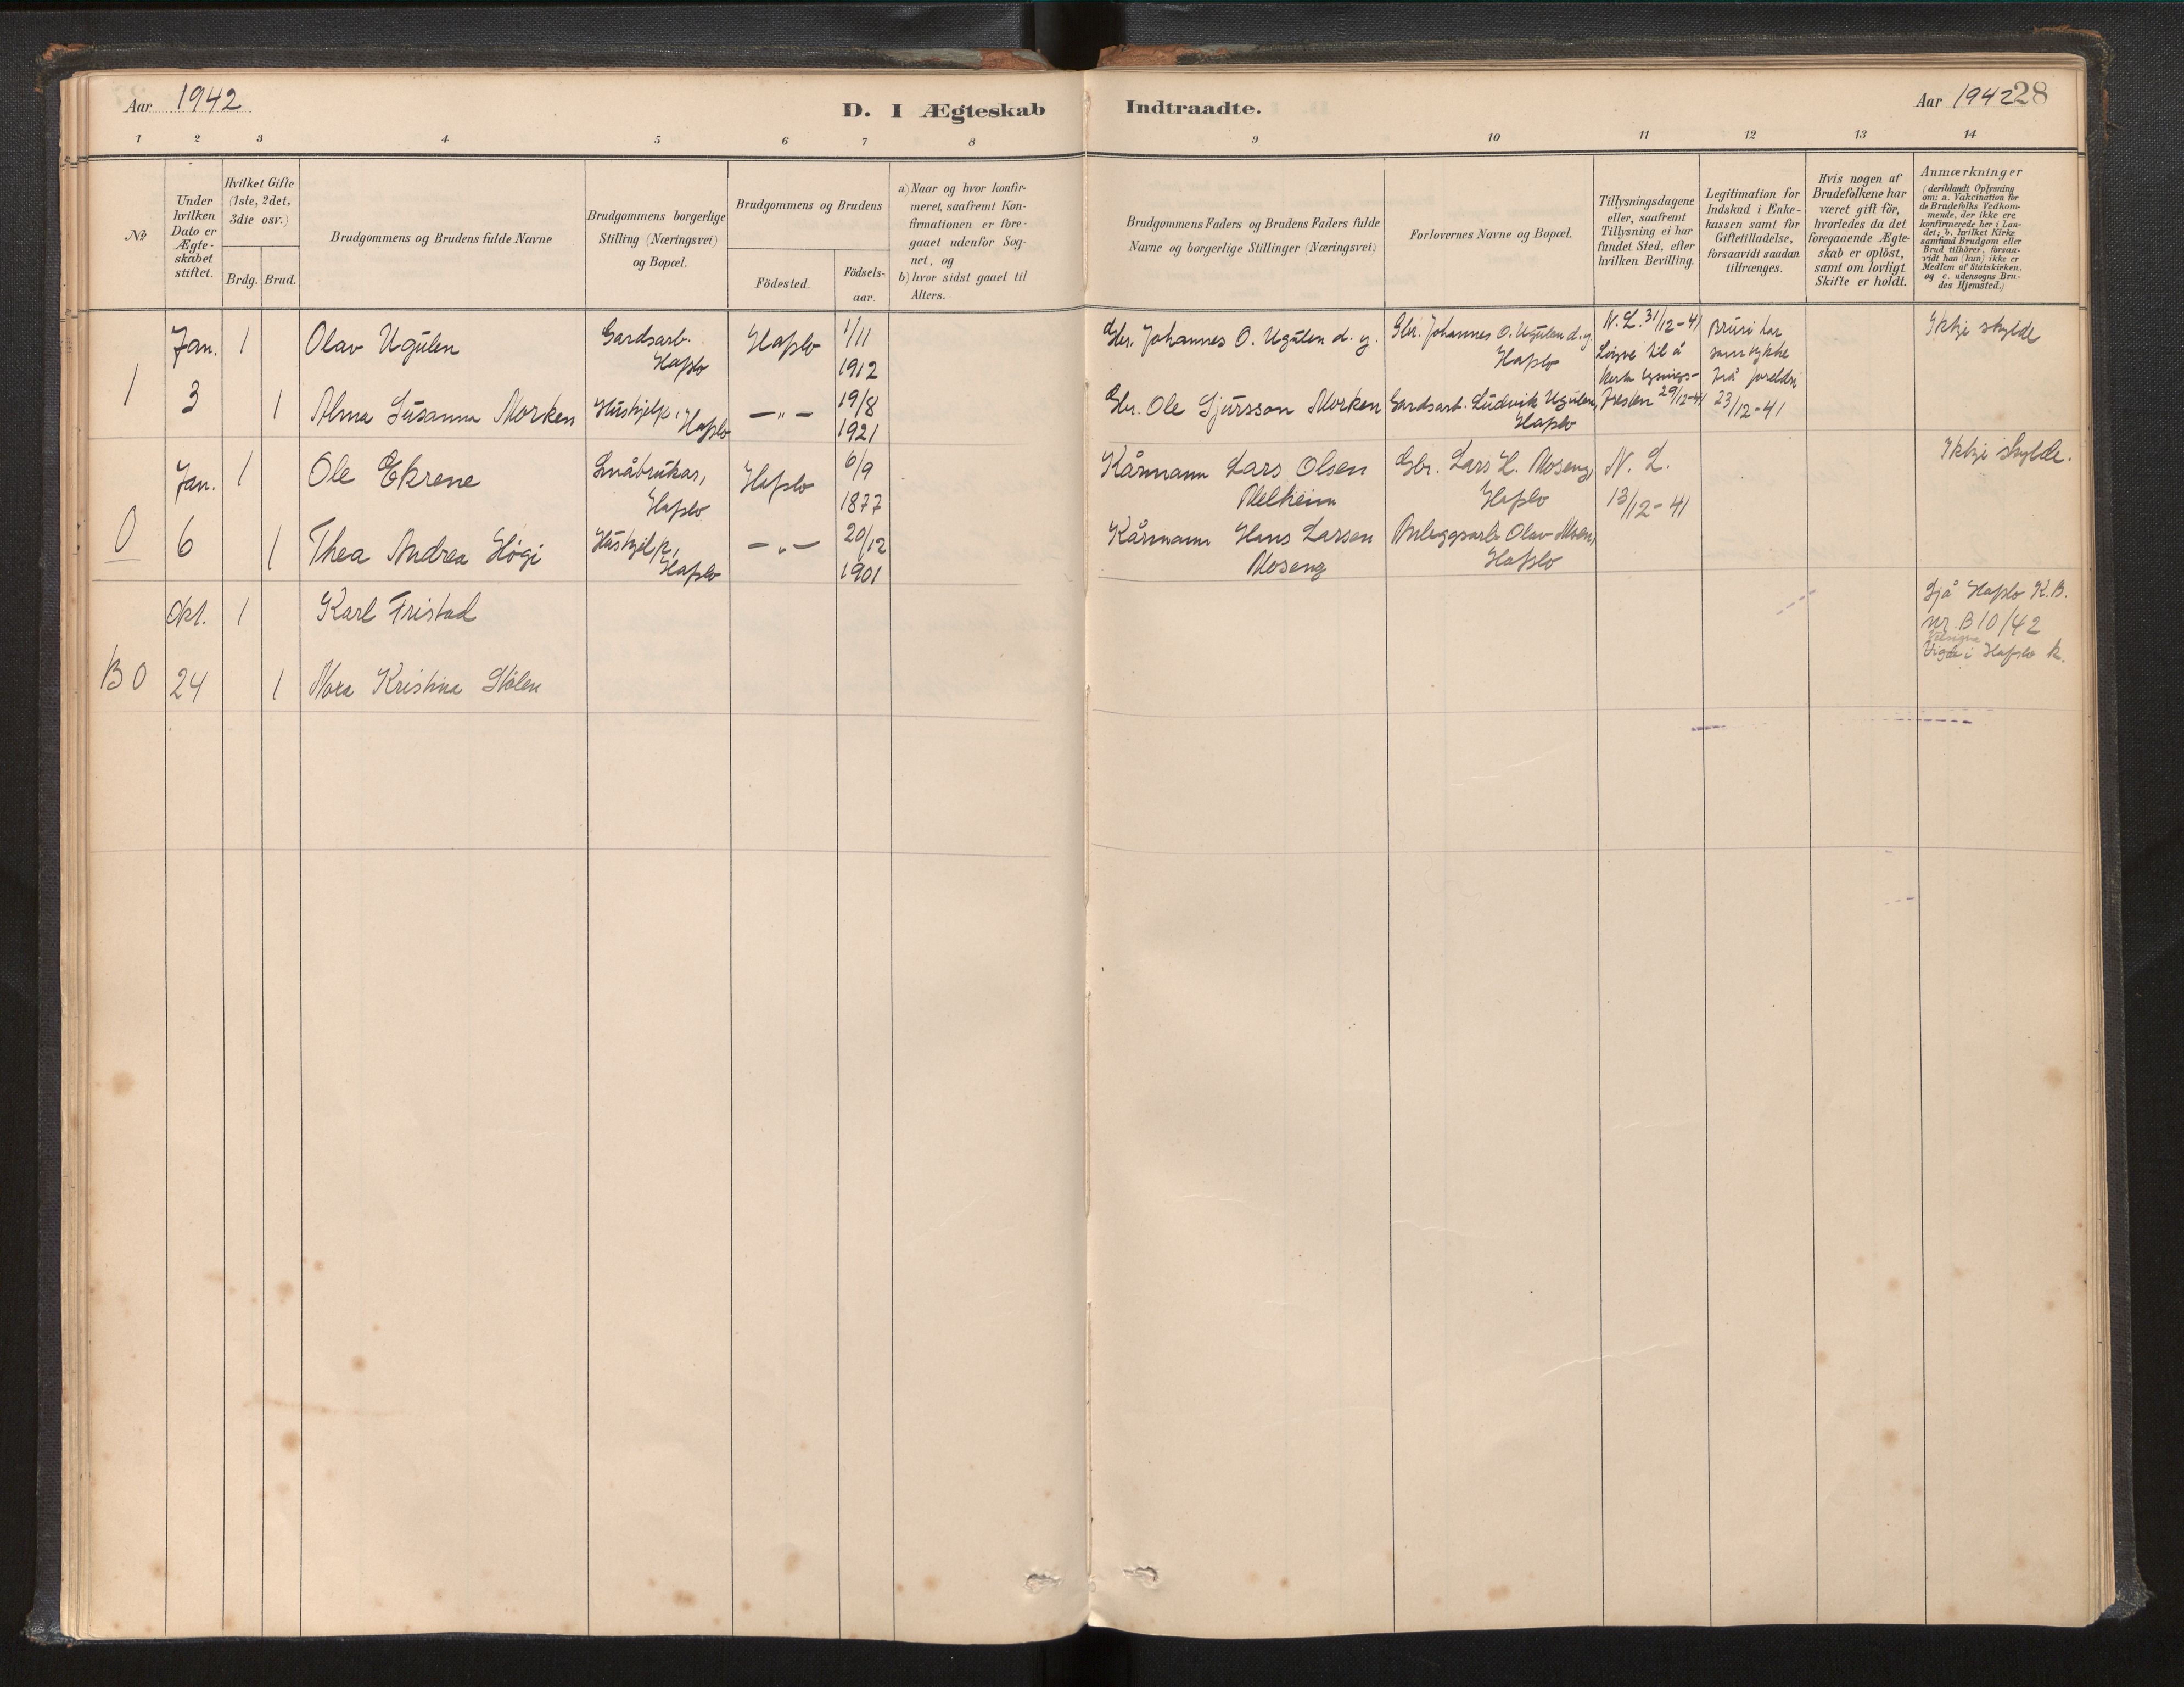 Aar 1942
D. I Ægteskab Indtraadte.
Aar 1942 28
1 2 3 4 5 6 7 8 9 10 11 12 13 14
No
Under
hvilken
Dato er
Ægte-
skabet
stiftet.
Hvilket Gifte
(1ste, 2det,
3die osv.)
Brdg. Brud.
Brudgommens og Brudens fulde Navne
Brudgommens borgerlige
Stilling (Næringsvei)
og Bopæl.
Brudgommens og Brudens
Födested.
Födsels-
aar.
a) Naar og hvor konfir-
meret, saafremt Kon-
firmationen er fore-
gaaet udenfor Sog-
net, og
b) hvor sidst gaaet til
Alters.
Brudgommens Faders og Brudens Faders fulde
Navne og borgerlige Stillinger (Næringsvei)
Forlovernes Navne og Bopæl.
Tillysningsdagene
eller, saafremt
Tillysning ei har
fundet Sted, efter
hvilken Bevilling.
Legitimation for
Indskud i Enke-
kassen samt for
Giftetilladelse,
forsaavidt saadan
tiltrænges.
Hvis nogen af
Brudefolkene har
været gift för,
hvorledes da det
foregaaende Ægte-
skab er oplöst,
samt om lovligt
Skifte er holdt.
Anmærkninger
(deriblandt Oplysning
om: a. Vakcination for
de Brudefolks Vedkom-
mende, der ikke ere
konfirmerede her i Lan-
det; b. hvilket Kirke-
samfund Brudgom eller
Brud tilhörer, forsaa-
vidt han (hun) ikke er
Medlem af Statskirken.
og c. udensogns Bru-
des Hjemsted.)
1
Jan.
3
1
Olav Ugulen
Gardsarb.
Hafslo
Hafslo
1/11
1912
Gbr. Johannes O. Ugulen d. y.
Gbr. Johannes O. Ugulen d. y.
Hafslo
N. L. 31/12-41
Løyve til å
korte lysings-
fresten 29/12-41
Bruri har
samtykke
frå foreldri
23/12-41
Ikkje skylde
1
Alma Susanna Morken
Hushjelp,
Hafslo
—"—
19/8
1921
Gbr. Ole Sjursson Morken
Gardsarb. Ludvik Ugulen,
Hafslo
0
Jan.
6
1
Ole Ekrene
Småbrukar,
Hafslo
Hafslo
6/9
1877
Kårmann Lars Olsen
Melheim
Gbr. Lars H. Moseng,
Hafslo
N. L.
13/12-41
Ikkje skylde.
1
Thea Andrea Høgi
Hushjelp,
Hafslo
—"—
20/12
1901
Kårmann Hans Larsen
Moseng
Anleggsarb. Olav Moen,
Hafslo
B 0
Okt.
24
1
Karl Fristad
Sjå Hafslo K.B.
nr. B 10/42
i Hafslo k.
1
Nora Kristina Stølen